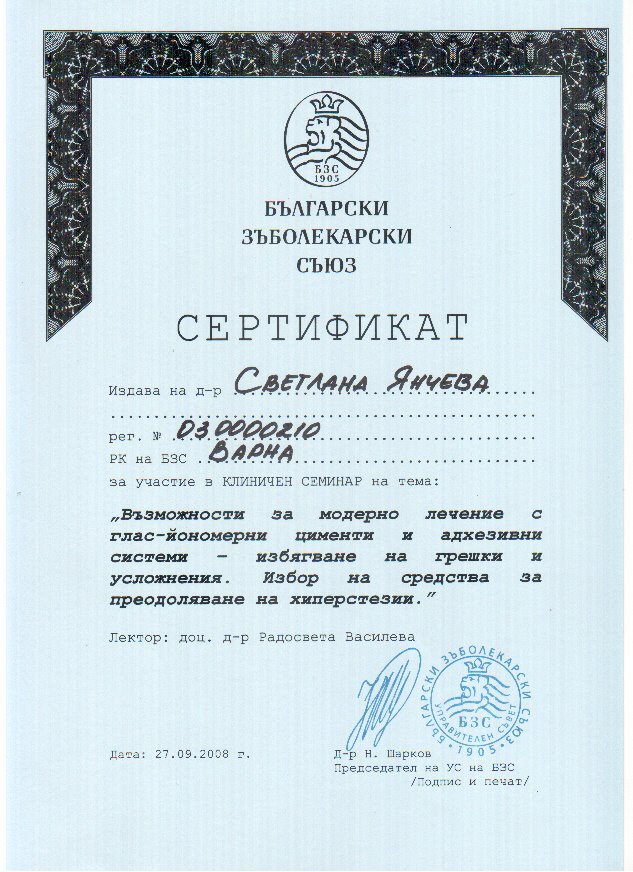 БЗС
1905
БЪЛГАРСКИ
ЗЪБОЛЕКАРСКИ
СЪЮЗ
СЕРТИФИКАТ
Издава на д-р Светлана Янчева
рег. № 030000210
РК на БЗС Варна
за участие в КЛИНИЧЕН СЕМИНАР на тема:
„Възможности за модерно лечение с
глас-йономерни цименти и адхезивни
системи – избягване на грешки и
усложнения. Избор на средства за
преодоляване на хиперстезии.”
Лектор: доц. д-р Радосвета Василева
БЪЛГАРСКИ ЗЪБОЛЕКАРСКИ СЪЮЗ
БЗС
УПРАВИТЕЛЕН СЪВЕТ
1905
Дата: 27.09.2008 г. Д-р Н. Шарков
Председател на УС на БЗС
/Подпис и печат/